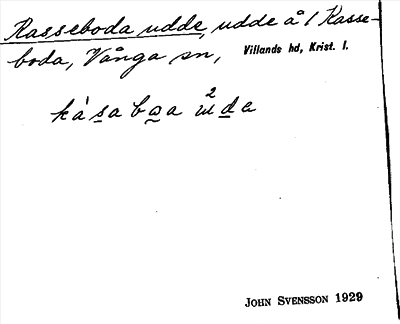 Kasseboda udde, udde å / Kasse-
boda, Vånga sn, Villands hd, Krist. l.
2
John Svensson 1929